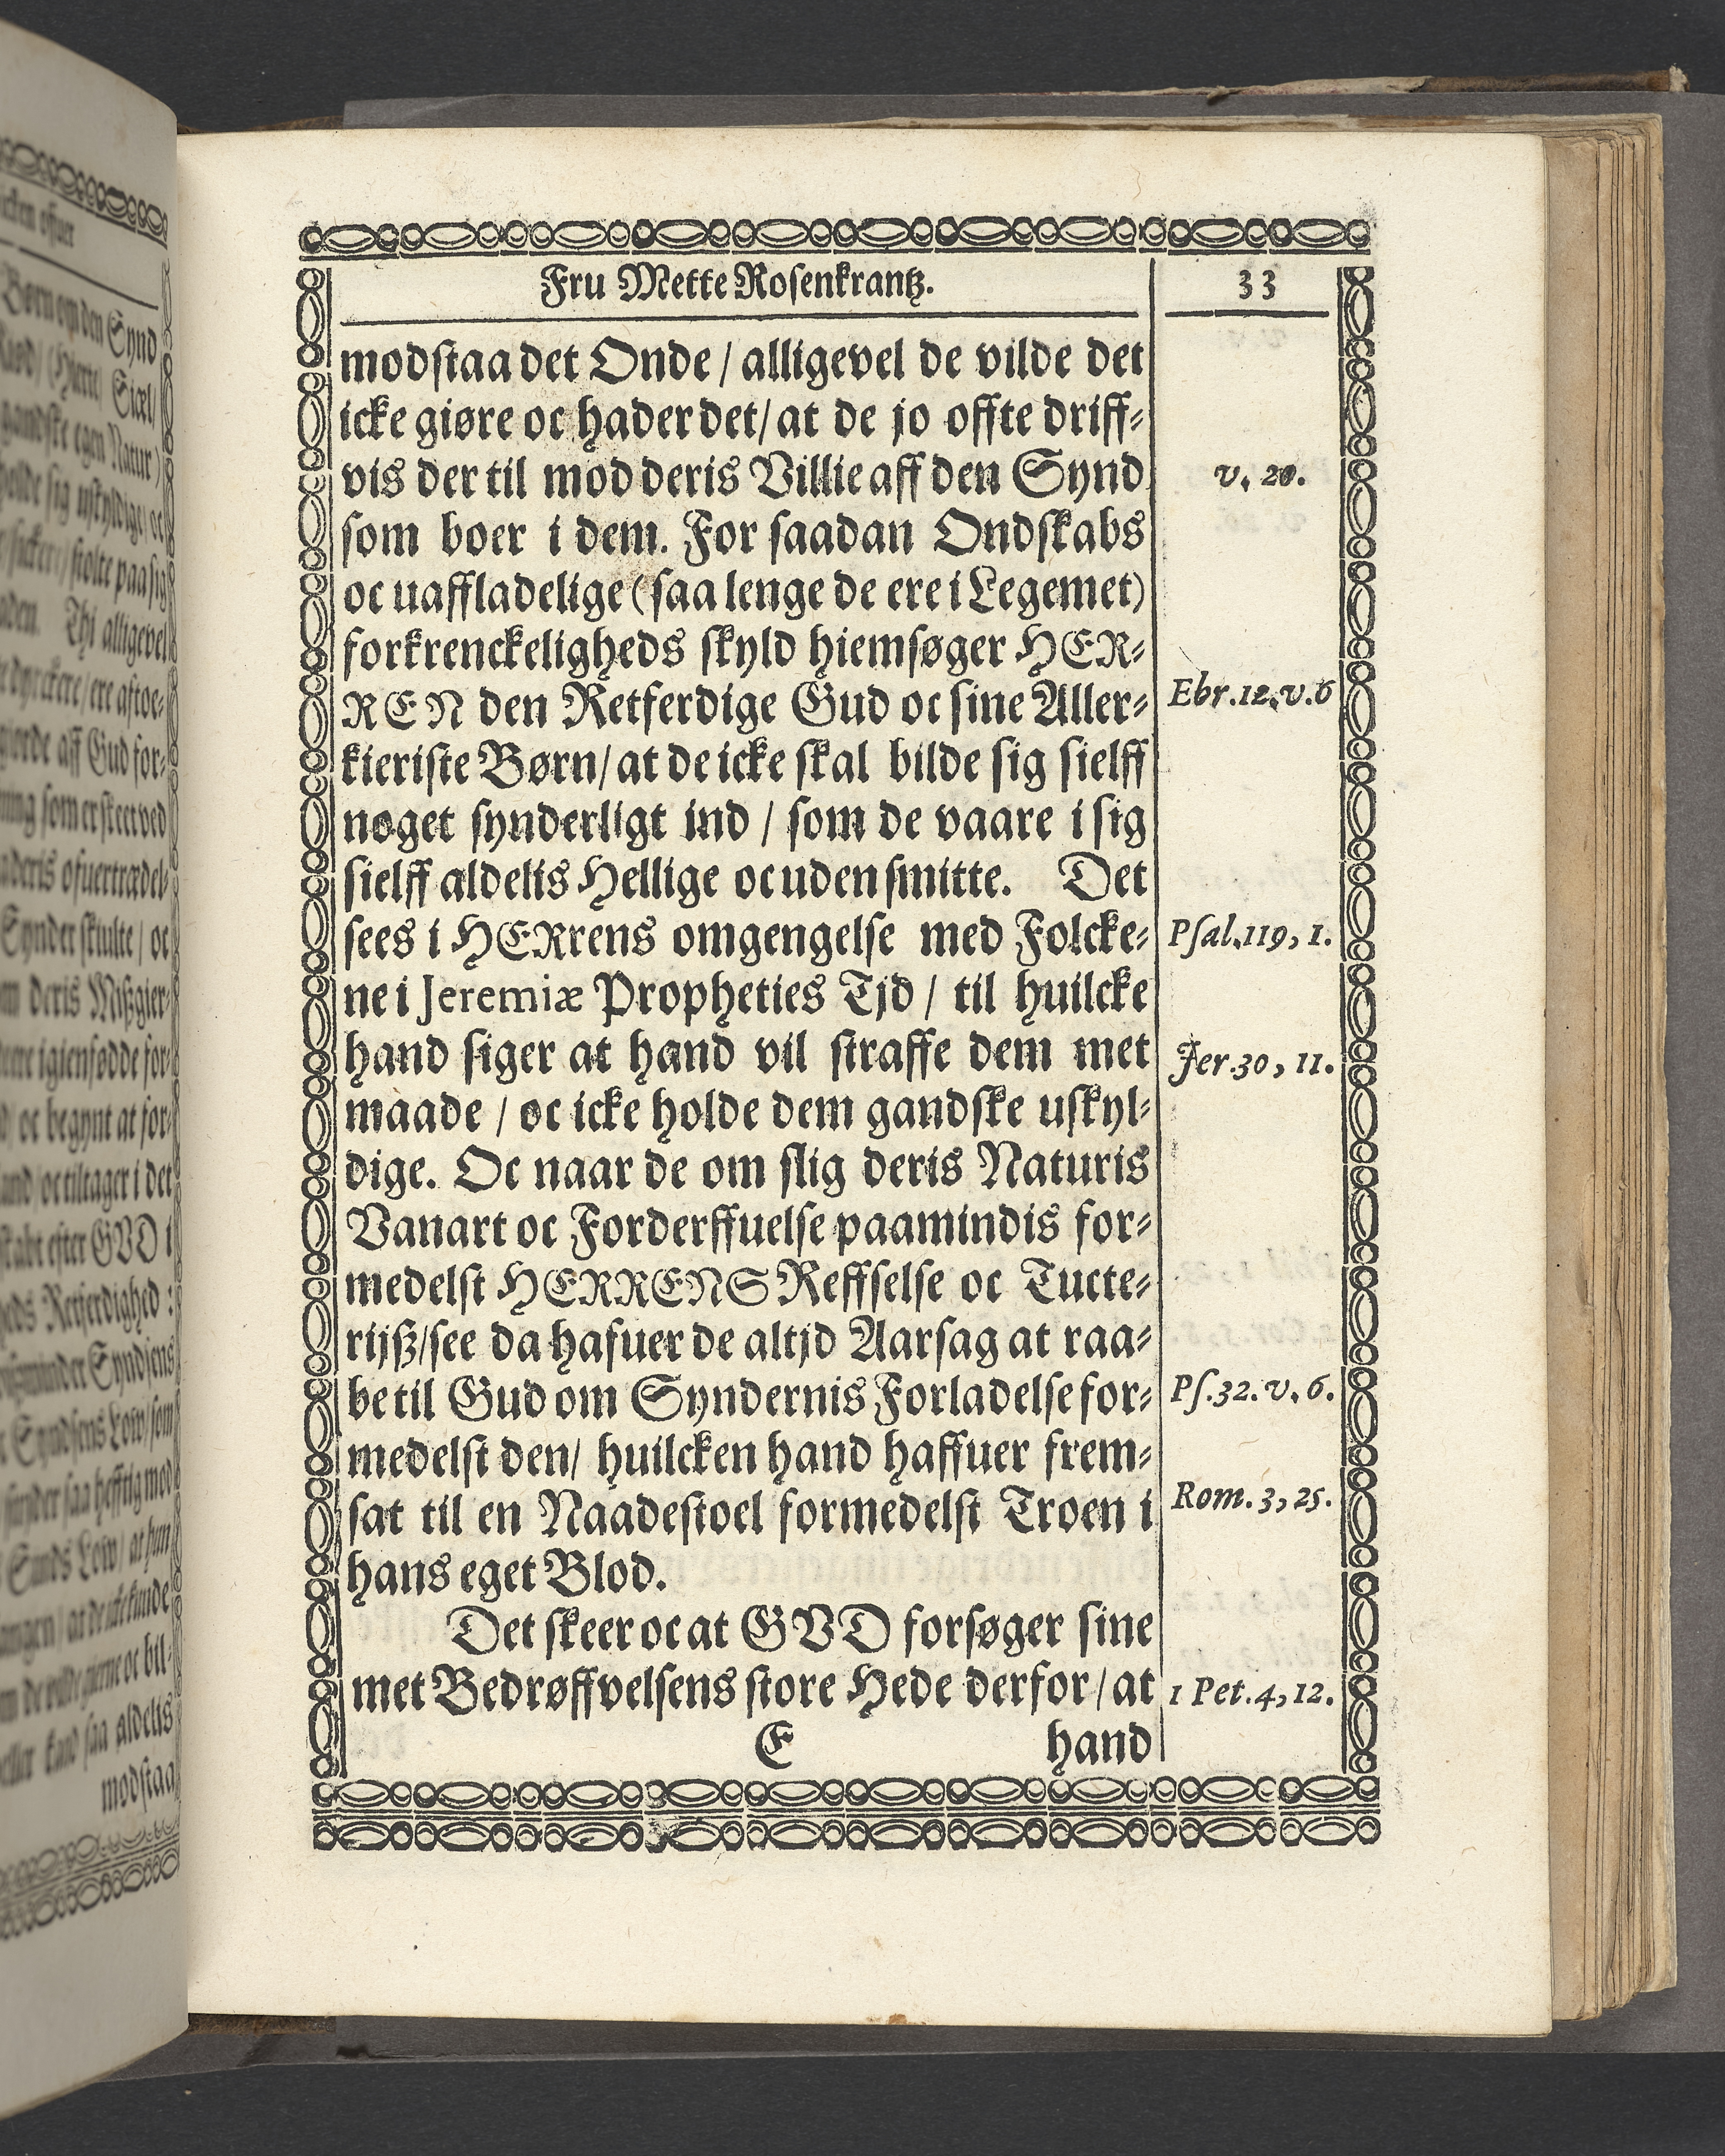 Fru Mette Rosenkrantz.
33
modstaa det Onde / alligevel de vilde det
icke giøre oc hader det / at de jo offte driff-
vis der til mod deris Villie aff den Synd
v. 20.
som boer i dem. For saadan Ondskabs
oc uaffladelige (saa lenge de ere i Legemet)
forkrenckeligheds skyld hiemsøger HER-
REN den Retferdige Gud oc sine Aller-
Ebr. 12. v. 6
kieriste Børn / at de icke skal bilde sig sielff
noget synderligt ind / som de vaare i sig
sielff aldelis Hellige oc uden smitte. Det
sees i HERrens omgengelse med Folcke-
Psal. 119, 1.
ne i Jeremiæ Propheties Tjd / til huilcke
hand siger at hand vil straffe dem met
Jer. 30, 11.
maade / oc icke holde dem gandske uskyl-
dige. Oc naar de om slig deris Naturis
Vanart oc Forderffuelse paamindis for-
medelst HERRENS Reffselse oc Tucte-
rijß / see da hafuer de altjd Aarsag at raa-
be til Gud om Syndernis Forladelse for-
Ps. 32. v. 6.
medelst den / huilcken hand haffuer frem-
sat til en Naadestoel formedelst Troen i
Rom. 3, 25.
hans eget Blod.
Det skeer oc at GVD forsøger sine
met Bedrøffvelsens store Hede derfor / at
1 Pet. 4, 12.
E hand